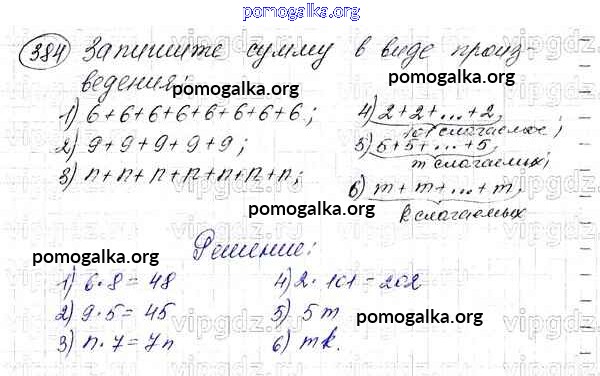 pomogalka.org
384 Запишите сумму в виде произ-
ведения:
pomogalka.org
pomogalka.org
1) 6+6+6+6+6+6+6+6;
2) 9+9+9+9+9;
3) n+n+n+n+n+n+n;
4) 2+2+...+2,
101 слагаемое;
5) 5+5+...+5,
m слагаемых;
6) m+m+...+m,
k слагаемых
pomogalka.org
pomogalka.org
Решение:
1) 6·8=48
2) 9·5=45
3) n·7=7n
4) 2·101=202
5) 5m
6) mk.
pomogalka.org